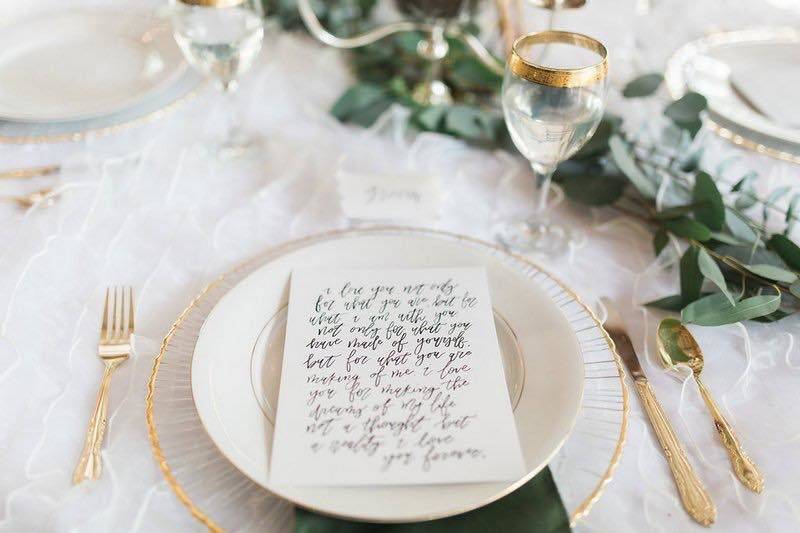 groom
i love you not only
for what you are but for
what i am with you
not only for what you
have made of yourself.
but for what you are
making of me i love
you for making the
dreams of my life
not a thought but
a reality i love
you forever.